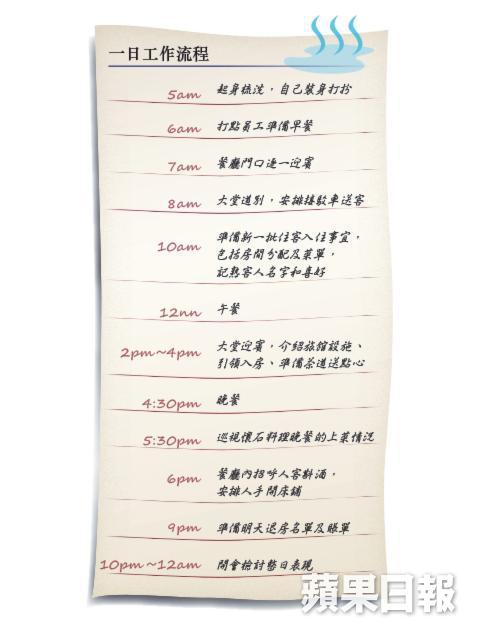 一日工作流程
5am 起身梳洗，自己裝身打扮
6am 打點員工準備早餐
7am 餐廳門口逐一迎賓
8am 大堂道別，安排接駁車送客
10am 準備新一批住客入住事宜，
包括房間分配及菜單，
記熟客人名字和喜好
12nn 午餐
2pm~4pm 大堂迎賓，介紹旅館設施、
引領入房、準備茶道送點心
4:30pm 晚餐
5:30pm 巡視懷石料理晚餐的上菜情況
6pm 餐廳內招呼人客斟酒，
安排人手開床鋪
9pm 準備明天退房名單及賬單
10pm~12am 開會檢討整日表現
蘋果日報